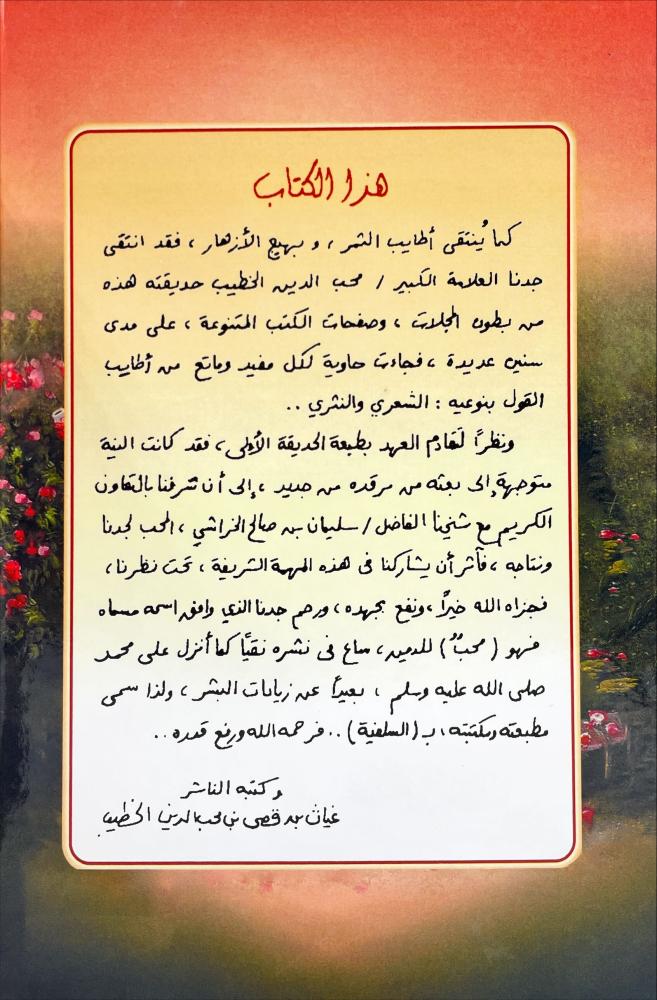 هذا الكتاب
كما يُنتقى أطايب الثمر ، و بهيج الأزهار ، فقد انتقى
جدنا العلامة الكبير / محب الدين الخطيب حديقته هذه
من بطون المجلات ، وصفحات الكتب المتنوعة ، على مدى
سنين عديدة ، فجاءت حاوية لكل مفيد وماتع من أطايب
القول بنوعيه : الشعري والنثري ..
ونظراً لتقادم العهد بطبعة الحديقة الأولى ، فقد كانت النية
متوجهة إلى بعثه من مرقده من جديد ، إلى أن شرفنا بالتعاون
الكريم مع شيخنا الفاضل / سليمان بن صالح الخراشي ، المحب لجدنا
ونتاجه ، فآثر أن يشاركنا في هذه المهمة الشريفة ، تحت نظرنا ،
فجزاه الله خيراً ، ونفع بجهده ، ورحم جدنا الذي وافق اسمه مسماه
فهو ( محبٌ ) للدين ، ساع في نشره نقيًا كما أنزل على محمد
صلى الله عليه وسلم ، بعيداً عن زيادات البشر ، ولذا سمى
مطبعته ومكتبته ، بـ ( السلفية ) .. فرحمه الله ورفع قدره ..
وكتبه الناشر
غياث بن قصي بن محب الدين الخطيب